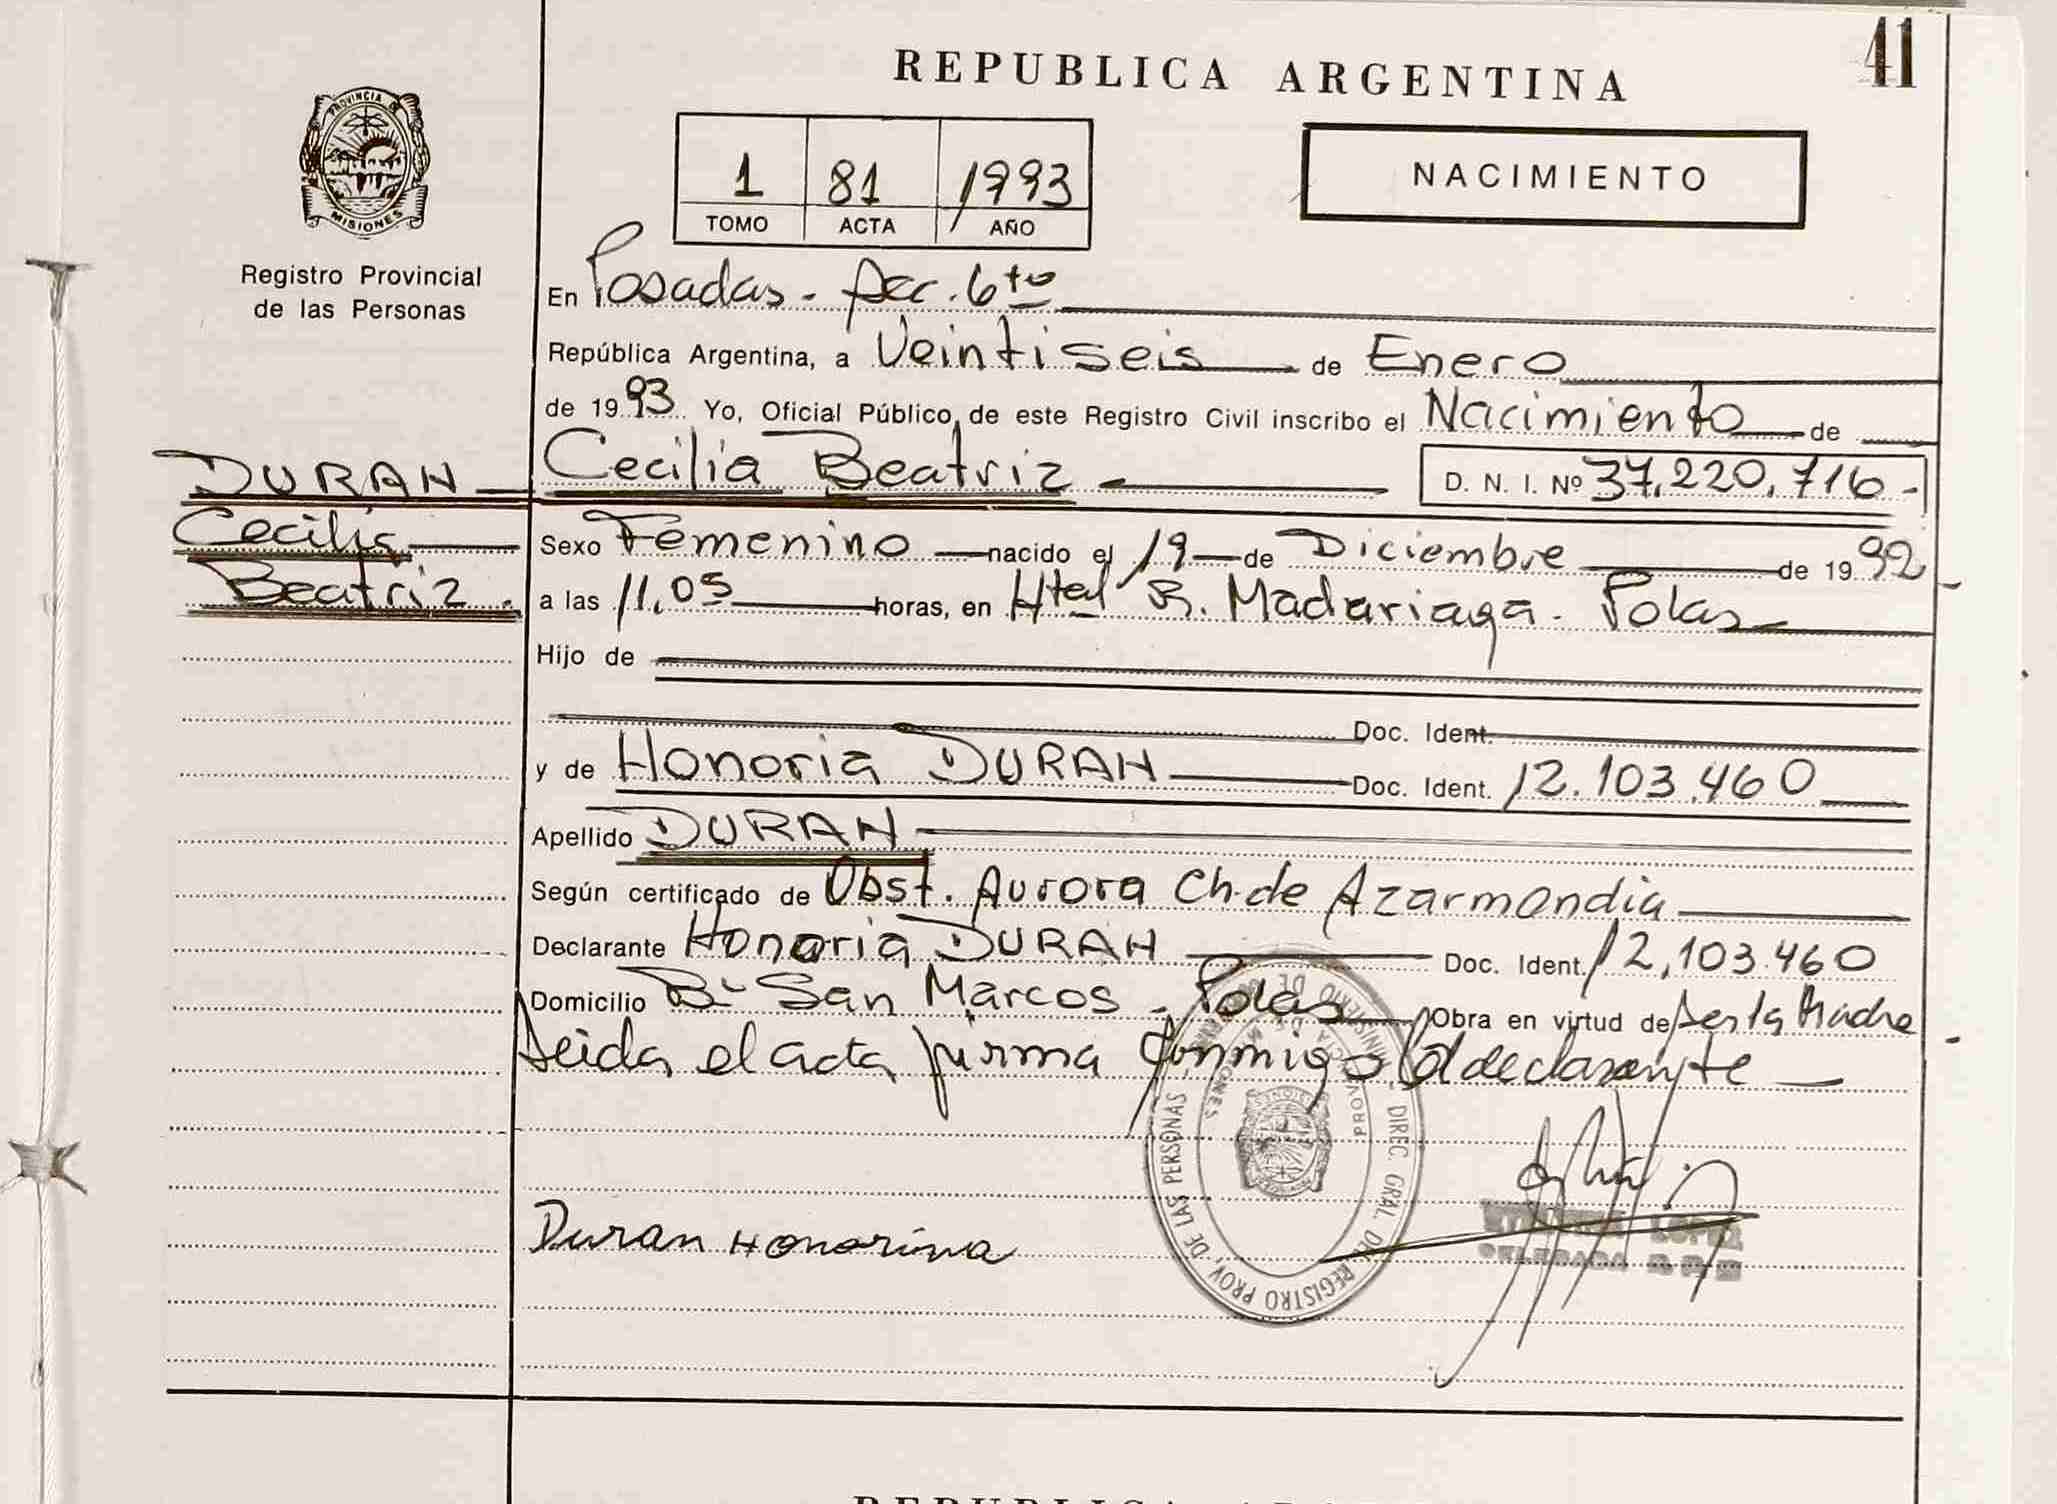 41
REPUBLICA ARGENTINA
PROVINCIA DE
MISIONES
Registro Provincial
de las Personas
1 81 1993
TOMO ACTA AÑO
NACIMIENTO
En Posadas - Secc. 6to
República Argentina, a Veintiseis de Enero
de 1993 Yo, Oficial Público de este Registro Civil inscribo el Nacimiento de
DURAN Cecilia Beatriz D. N. I. Nº 37,220,716-
Cecilia Sexo Femenino nacido el 19 de Diciembre de 1992
Beatriz. a las 11,05 horas, en Htal R. Madariaga. Pdas
Hijo de
Doc. Ident.
y de Honoria DURAN Doc. Ident. 12.103.460
Apellido DURAN
Según certificado de Obst. Aurora Ch. de Azarmendia
Declarante Honoria DURAN Doc. Ident. 12,103.460
Domicilio Bº San Marcos - Pdas Obra en virtud de ser la Madre
Leida el acta firma conmigo la declarante
DIREC. GRAL. DEL REGISTRO PROV. DE LAS PERSONAS
Duran Honorina
LOPEZ
DELEGADA
REPUBLICA